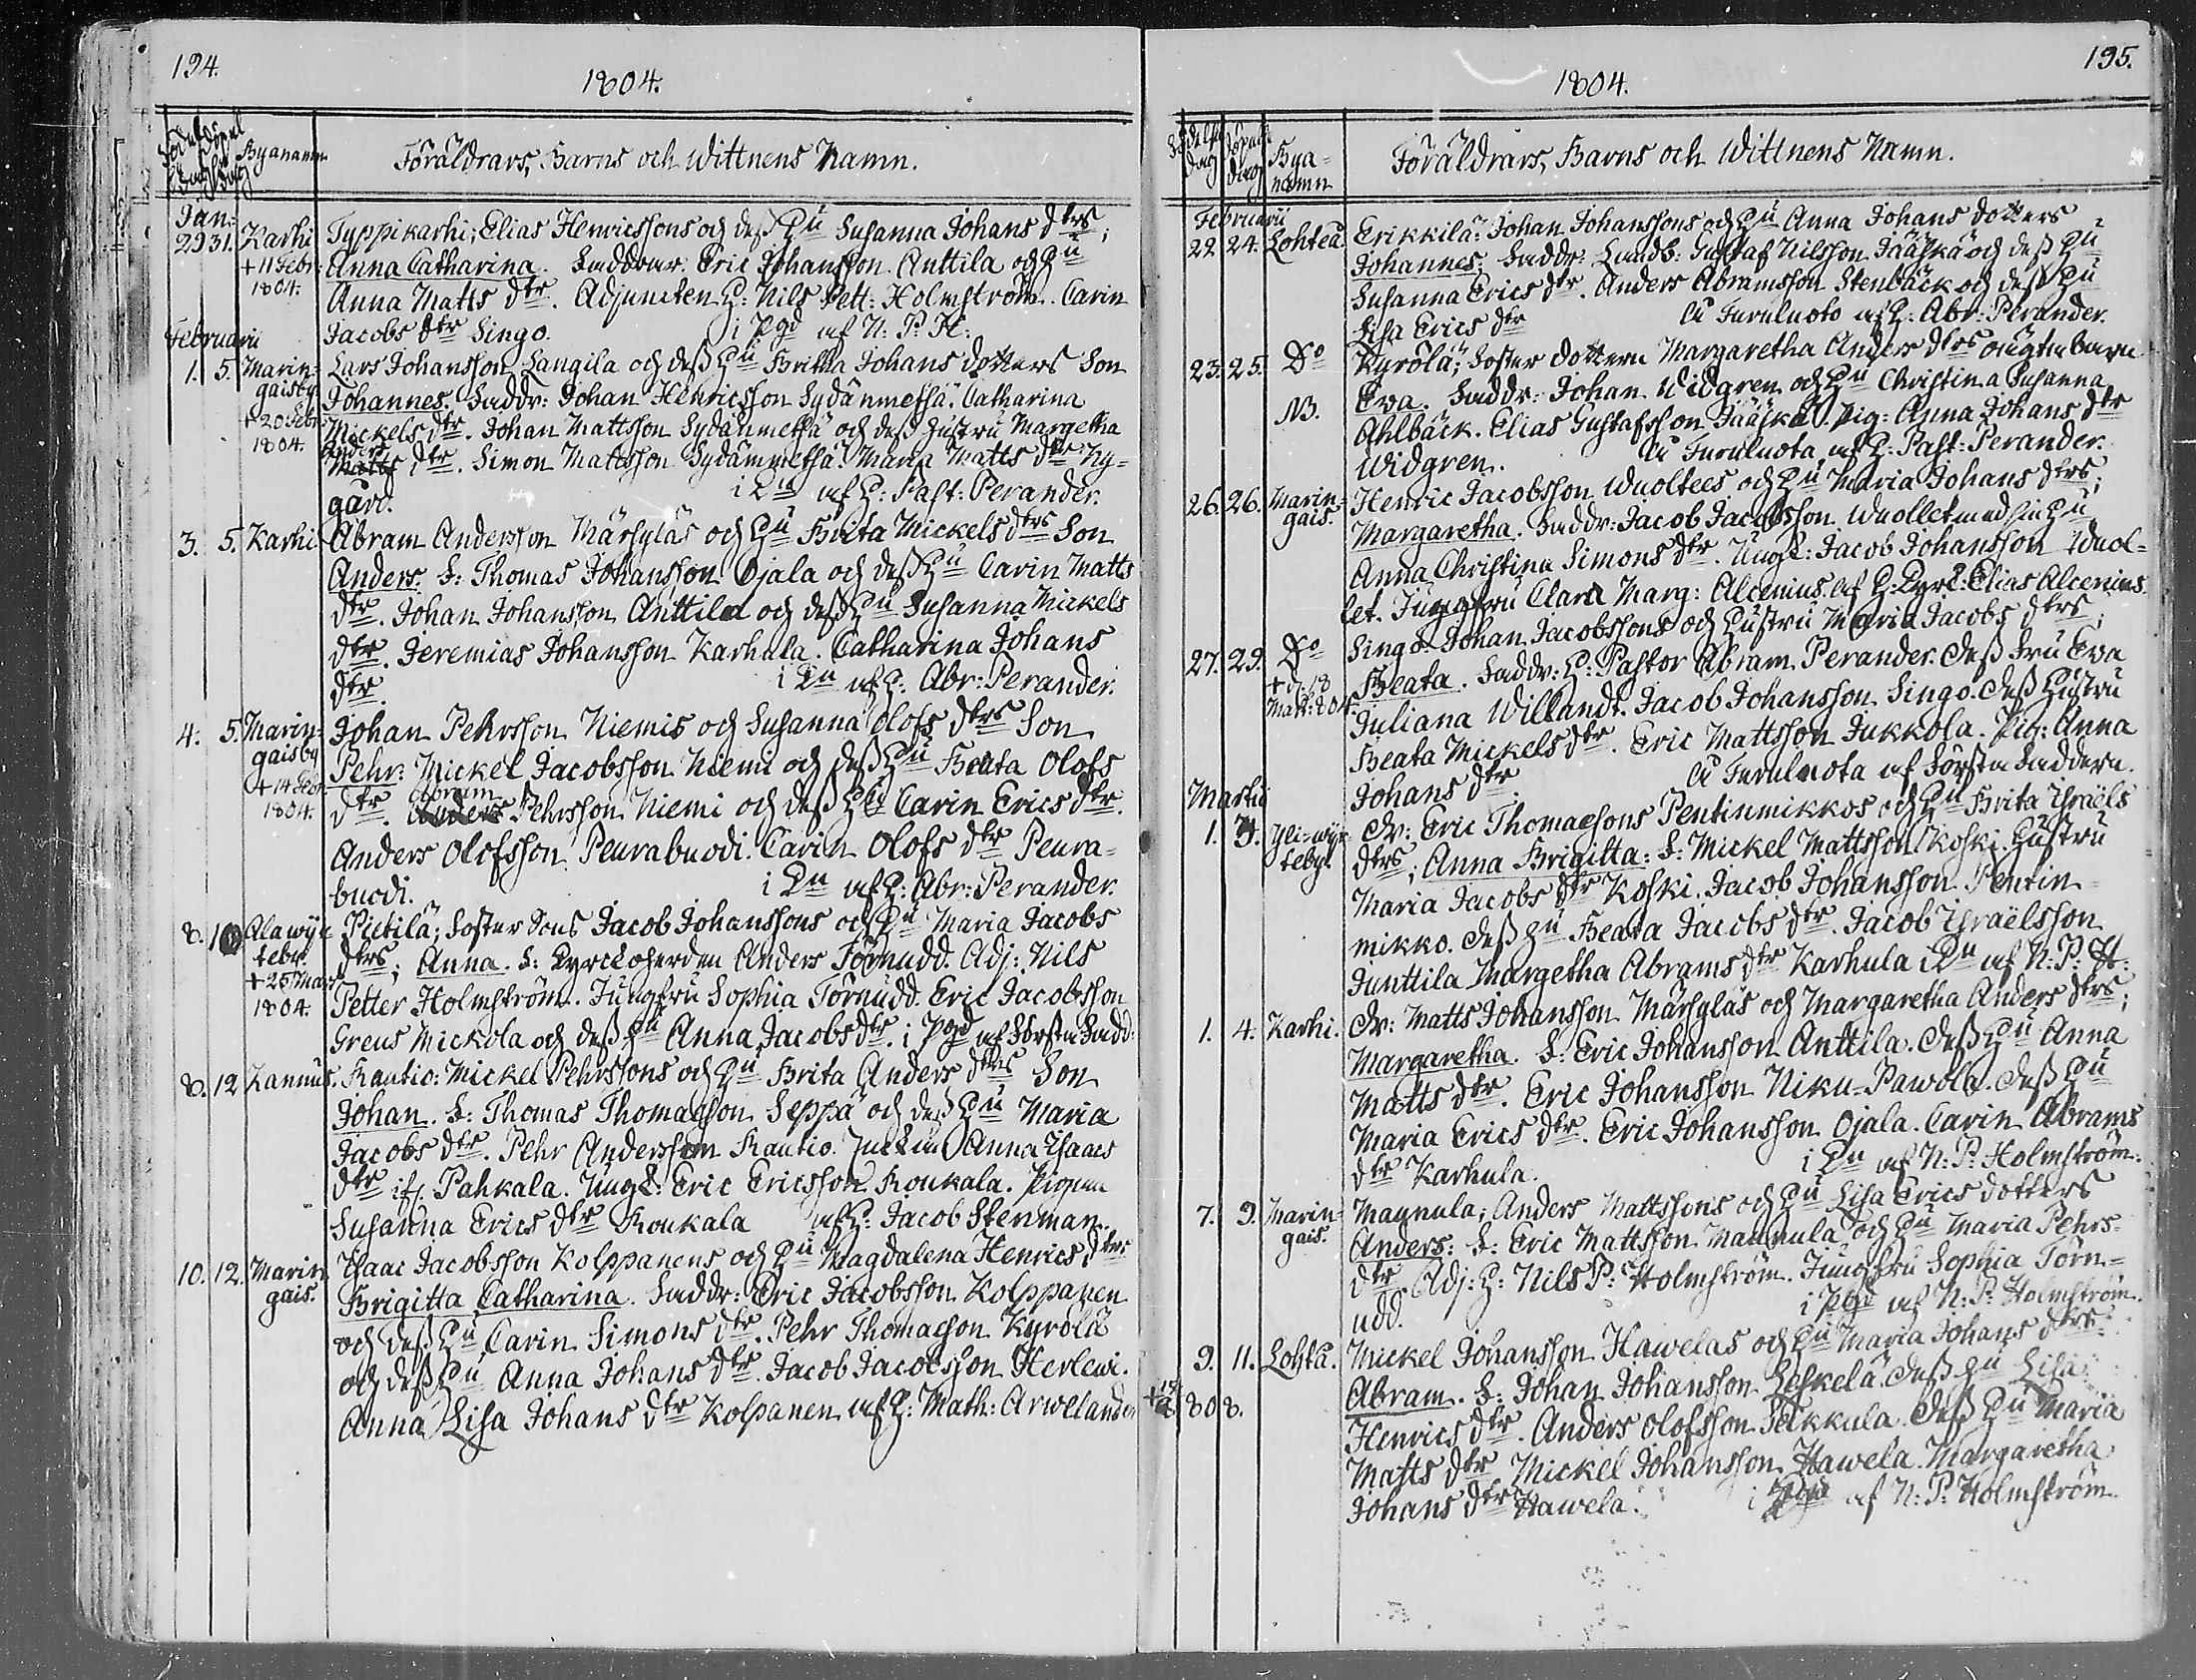 194.
1804.
Födelse dag Döpel se dag Byanamn
Föräldrars, Barns och Wittnens Namn.
Jan:
29 31. Karhi Typpikarhi; Elias Henricssons och deß Hu Susanna Johans dtrs;
+ 11 Febr: Anna Catharina. Faddrar. Eric Johansson Anttila och Hu
1804. Anna Matts dtr. Adjuncten H: Nils Pett: Holmström. Carin
Jacobs dtr Singo. i Pgd af N: P: H:
Februarii
1. 5. Marin= Lars Johansson Langila och deß Hu Britha Johans dotters Son
gaisby Johannes. Faddr: Johan Henricsson Sydänmetsä. Catharina
+ 20 Febr Mickels dtr. Johan Mattsson Sydänmetsä och deß hustru Margetha
1804. Anders
Matts dtr. Simon Mattsson Sydänmetsä. Maria Matts dtr Ny=
gård. i Ln af H: Past: Perander.
3. 5. Karhi Abram Andersson Märsyläs och Hu Brita Mickels dtrs Son
Anders. F: Thomas Johansson Ojala och deß Hu Carin Matts
dtr. Johan Johansson Anttila och deß Hu Susanna Mickels
dtr. Jeremias Johansson Karhula. Catharina Johans
dtr i Ln af H: Abr: Perander.
4. 5. Marin= Johan Pehrsson Niemis och Susanna Olofs dtrs Son
gaisby Pehr: Mickel Jacobsson Niemi och deß Hu Beata Olofs
+ 14 Febr Abram
1804. dtr. Anders Pehrsson Niemi och deß Hu Carin Erics dtr.
Anders Olofsson Peurabuodi. Carin Olofs dtr Peura=
buodi. i Ln af H: Abr: Perander.
8. Alawijr Pietilä; Foster Sons Jacob Johanssons och Hu Maria Jacobs
teby. dtrs; Anna. F: Kyrckoherden Anders Törnudd. Adj: Nils
+ 25 Mars
1804. Petter Holmström. Jungfru Sophia Törnudd. Eric Jacobsson
Greus Mickola och deß Hu Anna Jacobs dtr. i Pgd af Första Fadd:
8. 12 Lannus. Rautio: Mickel Pehrssons och Hu Brita Anders dtrs Son
Johan. F: Thomas Thomasson Seppä och deß Hu Maria
Jacobs dtr. Pehr Andersson Rautio. Anna Isaacs
dtr ifr. Pahkala. Ungk: Eric Ericsson Roukala. Pigan
Susanna Erics dtr Roukala af H: Jacob Stenman.
10. 12. Marin Isaac Jacobsson Kolppanens och Hu Magdalena Henrics dtrs
gais. Brigitta Catharina. Faddr: Eric Jacobsson Kolppanen
och deß Hu Carin Simons dtr. Pehr Thomasson Kyrölä
och deß Hu Anna Johans dtr. Jacob Jacobsson Herlewi.
Anna Lisa Johans dtr Kolpanen af H: Math: Arwelander
195.
1804.
Födelse dag Döpelse dag Bya= namn
Föräldrars, Barns och Wittnens Namn.
Februarii
22. 24. Lohteå Erikkilä: Johan Johanssons och Hu Anna Johans dotters
Johannes; Faddr: Lundb: Gustaf Nilsson Jääskä och deß Hu
Susanna Erics dtr. Anders Abramsson Stenbäck och deß Hu
Lisa Erics dtr å Furuluoto af H: Abr: Perander.
23. 25. Do Kyrölä; Foster dottern Margaretha Anders dtrs oägta barn
NB. Eva. Faddr: Johan Widgren och Hu Christina Susanna
Ahlbäck. Elias Gustafsson Jääskä. Pig: Anna Johans dtr
Widgren. å Furuluota af H: Past: Perander.
26. 26. Marin= Henric Jacobsson Wuoltees och Hu Maria Johans dtrs;
gais. Margaretha. Faddr: Jacob Jacobsson Wuollet med sin Hu
Anna Christina Simons dtr. Ungk: Jacob Johansson Wuol=
let. Jungfru Clara Marg: Alcenius. af H: Kyrk: Elias Alcenius.
27. 29. Do Singo. Johan Jacobssons och hustru Maria Jacobs dtrs,
+ d. 18 Beata. Faddr: H: Pastor Abram Perander. deß Fru Eva
Mart: 804. Juliana Willandt. Jacob Johansson Singo. deß hustru
Beata Mickels dtr. Eric Mattsson Jukkola. Pig: Anna
Johans dtr. å Furuluota af Första Faddern.
Martii
1. Yli=wijr Dr: Eric Thomassons Pentinmikkos och Hu Brita Israëls
teby. dtrs; Anna Brigitta: F: Mickel Mattsson Koski. hustru
Maria Jacobs dtr Koski. Jacob Johansson Pentin=
mikko. deß Hu Beata Jacobs dtr. Jacob Israëlsson
Junttila Margetha Abrams dtr Karhula i Ln af N: P: H:
1. 4. Karhi. Dr: Matts Johansson Märsyläs och Margaretha Anders dtrs;
Margaretha. F: Eric Johansson Anttila. deß Hu Anna
Matts dtr. Eric Johansson Niku=Pawola. deß Hu
Maria Erics dtr. Eric Johansson Ojala. Carin Abrams
dtr Karhula. i Ln af N: P: Holmström.
7. 9. Marin= Maunula; Anders Mattssons och Hu Lisa Erics dotters
gais. Anders: F: Eric Mattsson Maunula och Hu Maria Pehrs=
dtr. Adj: H: Nils P: Holmström. Jungfru Sophia Törn=
udd. i Pgd af N: P: Holmström.
9. 11. Lohtå. Mickel Johansson Hawelas och Hu Maria Johans dtrs
808. Abram. F: Johan Johansson Leskelä. deß Hu Lisa
Henrics dtr. Anders Olofsson Takkula. deß Hu Maria
Matts dtr. Mickel Johansson Hawela. Margaretha
Johans dtr Hawela. i Pgd af N: P: Holmström.